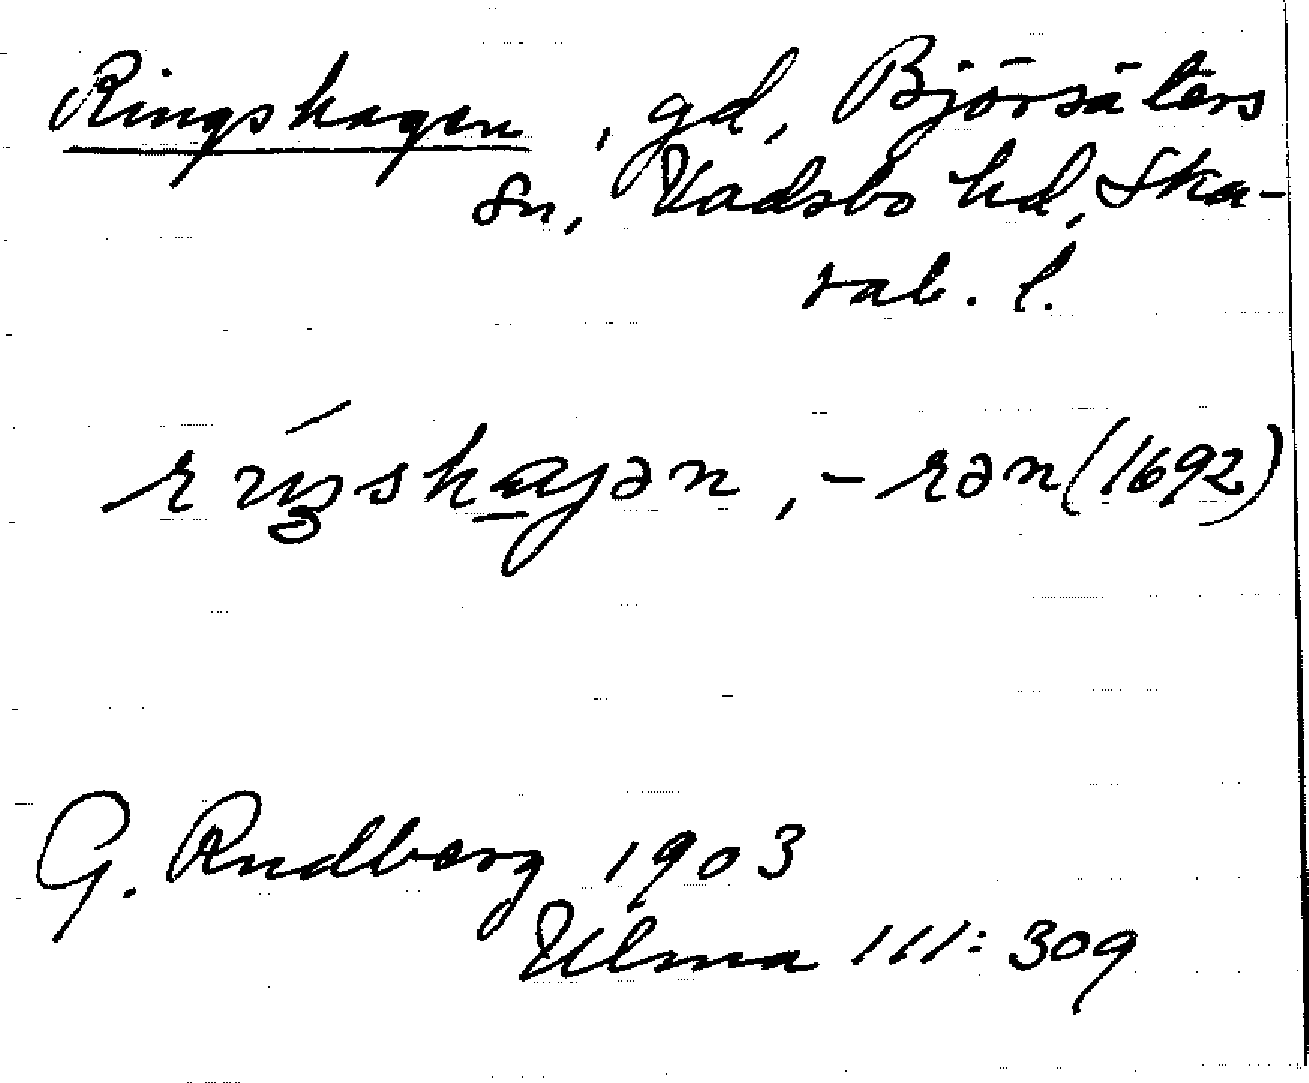 Ringshagen, gd, Björsäters
sn, Vadsbo hd, Ska-
rab. l.
ríŋshaɡən, -rən (1692)
G. Rudberg 1903
Ulma 111:309